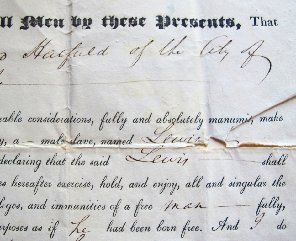 ll Men by these Presents, That
Hatfield of the City of
able considerations, fully and absolutely manumit, make
y, a male slave, named Lewis
declaring that the said Lewis shall
es hereafter exercise, hold, and enjoy, all and singular the
leges, and immunities of a free man — fully,
urposes as if he had been born free. And I do